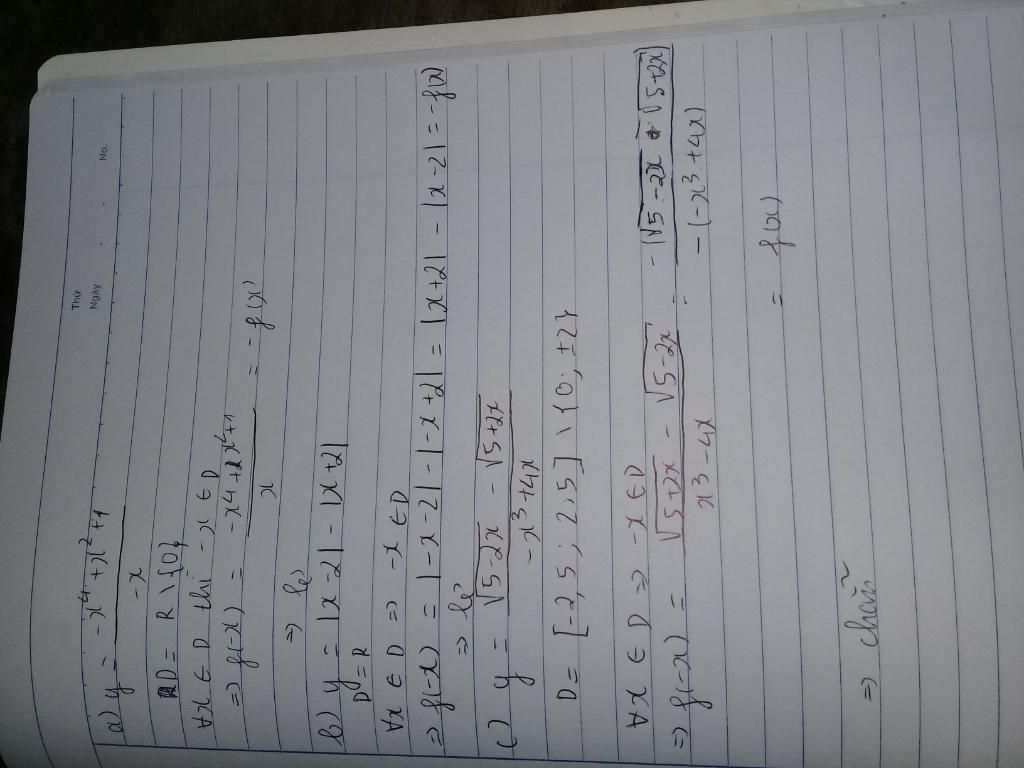 Thứ
Ngày
No.
a) y = (-x⁴ + x² + 1) / (-x)
D = R \ {0}
∀x ∈ D thì -x ∈ D
⇒ f(-x) = (-x⁴ + x² + 1) / x = -f(x)
⇒ lẻ
b) y = |x - 2| - |x + 2|
D = R
∀x ∈ D ⇒ -x ∈ D
⇒ f(-x) = |-x - 2| - |-x + 2| = |x + 2| - |x - 2| = -f(x)
⇒ lẻ
c) y = (√(5 - 2x) - √(5 + 2x)) / (-x³ + 4x)
D = [-2,5 ; 2,5] \ {0 ; ±2}
∀x ∈ D ⇒ -x ∈ D
⇒ f(-x) = (√(5 + 2x) - √(5 - 2x)) / (x³ - 4x) = -(√(5 - 2x) - √(5 + 2x)) / -(-x³ + 4x)
= f(x)
⇒ chẵn